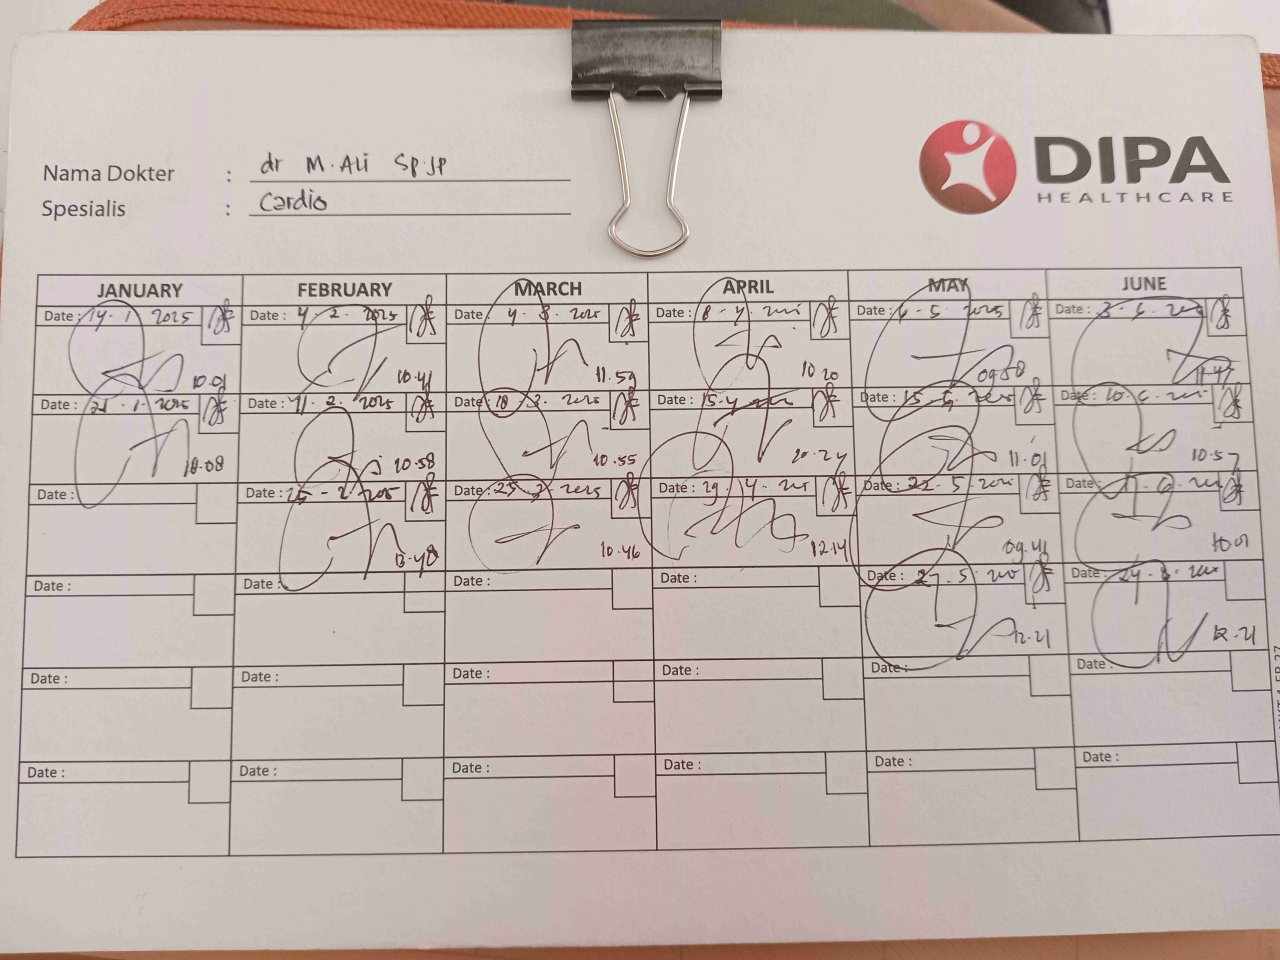 Nama Dokter : dr M. Ali Sp.JP
Spesialis : Cardio
DIPA
HEALTHCARE
JANUARY FEBRUARY MARCH APRIL MAY JUNE
Date : 14 . 1 . 2025 Date : 4 . 2 . 2025 Date : 4 . 3 . 2025 Date : 8 . 4 . Date : 6 . 5 . 2025 Date : 3 . 6 .
10.01 10.41 11.59 10 20 09.50 11.47
Date : 21 . 1 . 2025 Date : 11 . 2 . 2025 Date : 18 . 3 . 2025 Date : 15 . 4 . Date : 15 . 5 . Date : 10 . 6 .
10.08 10.58 10.55 10.24 11.01 10.57
Date : Date : 25 - 2 . 2025 Date : 25 . 3 . 2025 Date : 29 . 4 . Date : 22 . 5 . Date : 17 . 6 .
13.40 10.46 12.14 09.41 10.01
Date : Date : Date : Date : Date : 27 . 5 . Date : 24 .
12.21 12.21
Date : Date : Date : Date : Date : Date :
Date : Date : Date : Date : Date : Date :